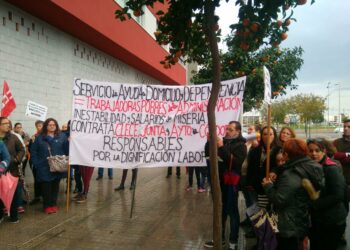 SERVICIO DE AYUDA A DOMICILIO Y DEPENDENCIA
= TRABAJADORAS POBRES
INESTABILIDAD Y SALARIOS DE MISERIA
CONTRATA CLECE, JUNTA Y AYTO. DE
RESPONSABLES
POR LA DIGNIFICACIÓN LABORAL